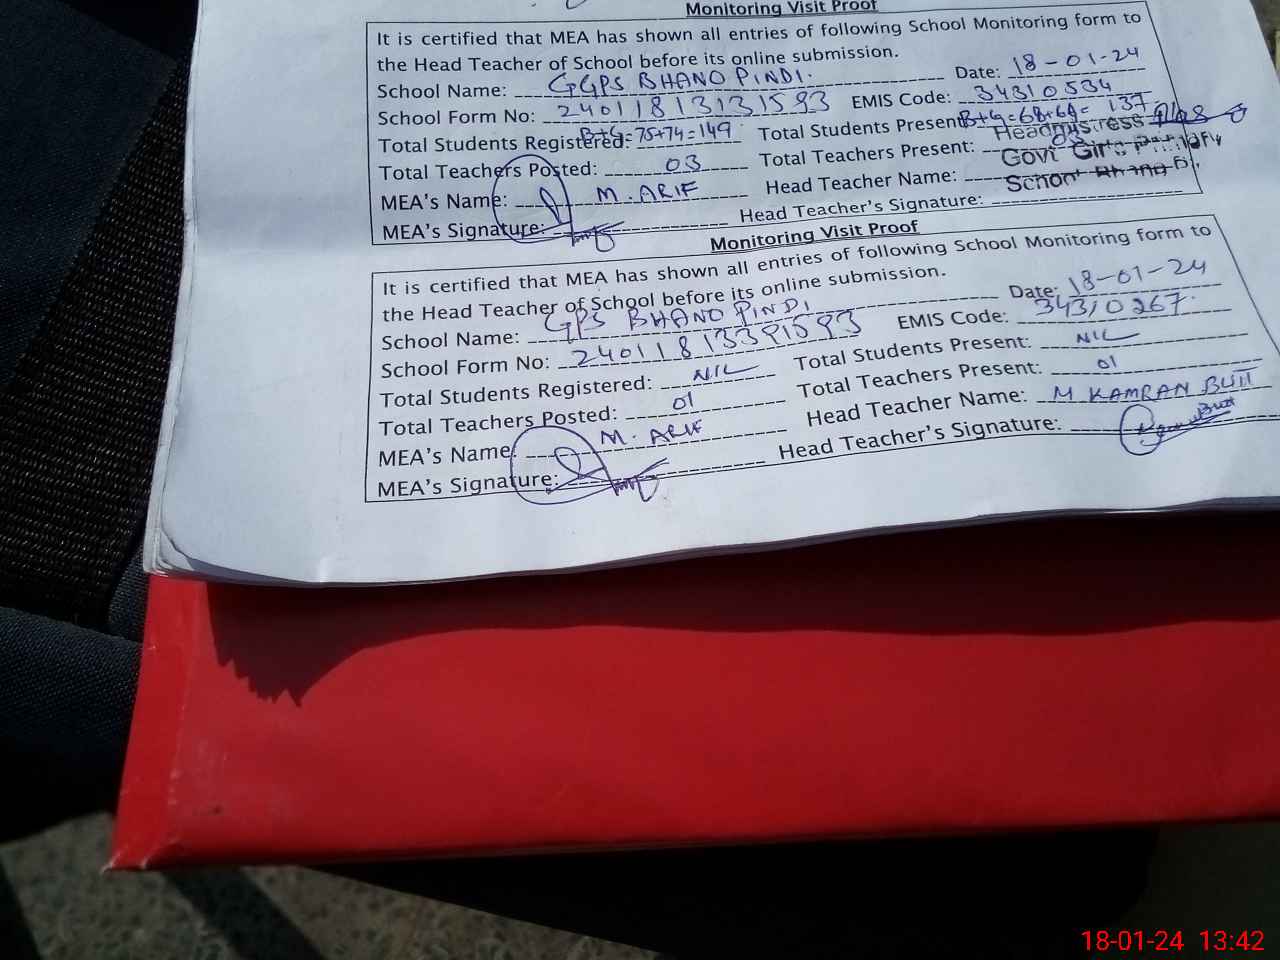 Monitoring Visit Proof
It is certified that MEA has shown all entries of following School Monitoring form to
the Head Teacher of School before its online submission.
School Name: GGPS BHANO PINDI. Date: 18-01-24
School Form No: 24011813131593 EMIS Code: 34310534
Total Students Registered: B+G=75+74=149 Total Students Present: B+G=68+69=137
Total Teachers Posted: 03 Total Teachers Present: 03
MEA's Name: M. ARIF Head Teacher Name:
Headmistress
Govt Girls Primary
School Bhano Pi
MEA's Signature: Head Teacher's Signature:
Monitoring Visit Proof
It is certified that MEA has shown all entries of following School Monitoring form to
the Head Teacher of School before its online submission.
School Name: GPS BHANO PINDI Date: 18-01-24
School Form No: 24011813391593 EMIS Code: 34310267.
Total Students Registered: NIL Total Students Present: NIL
Total Teachers Posted: 01 Total Teachers Present: 01
MEA's Name: M. ARIF Head Teacher Name: M KAMRAN BUTT
MEA's Signature: Head Teacher's Signature:
18-01-24 13:42